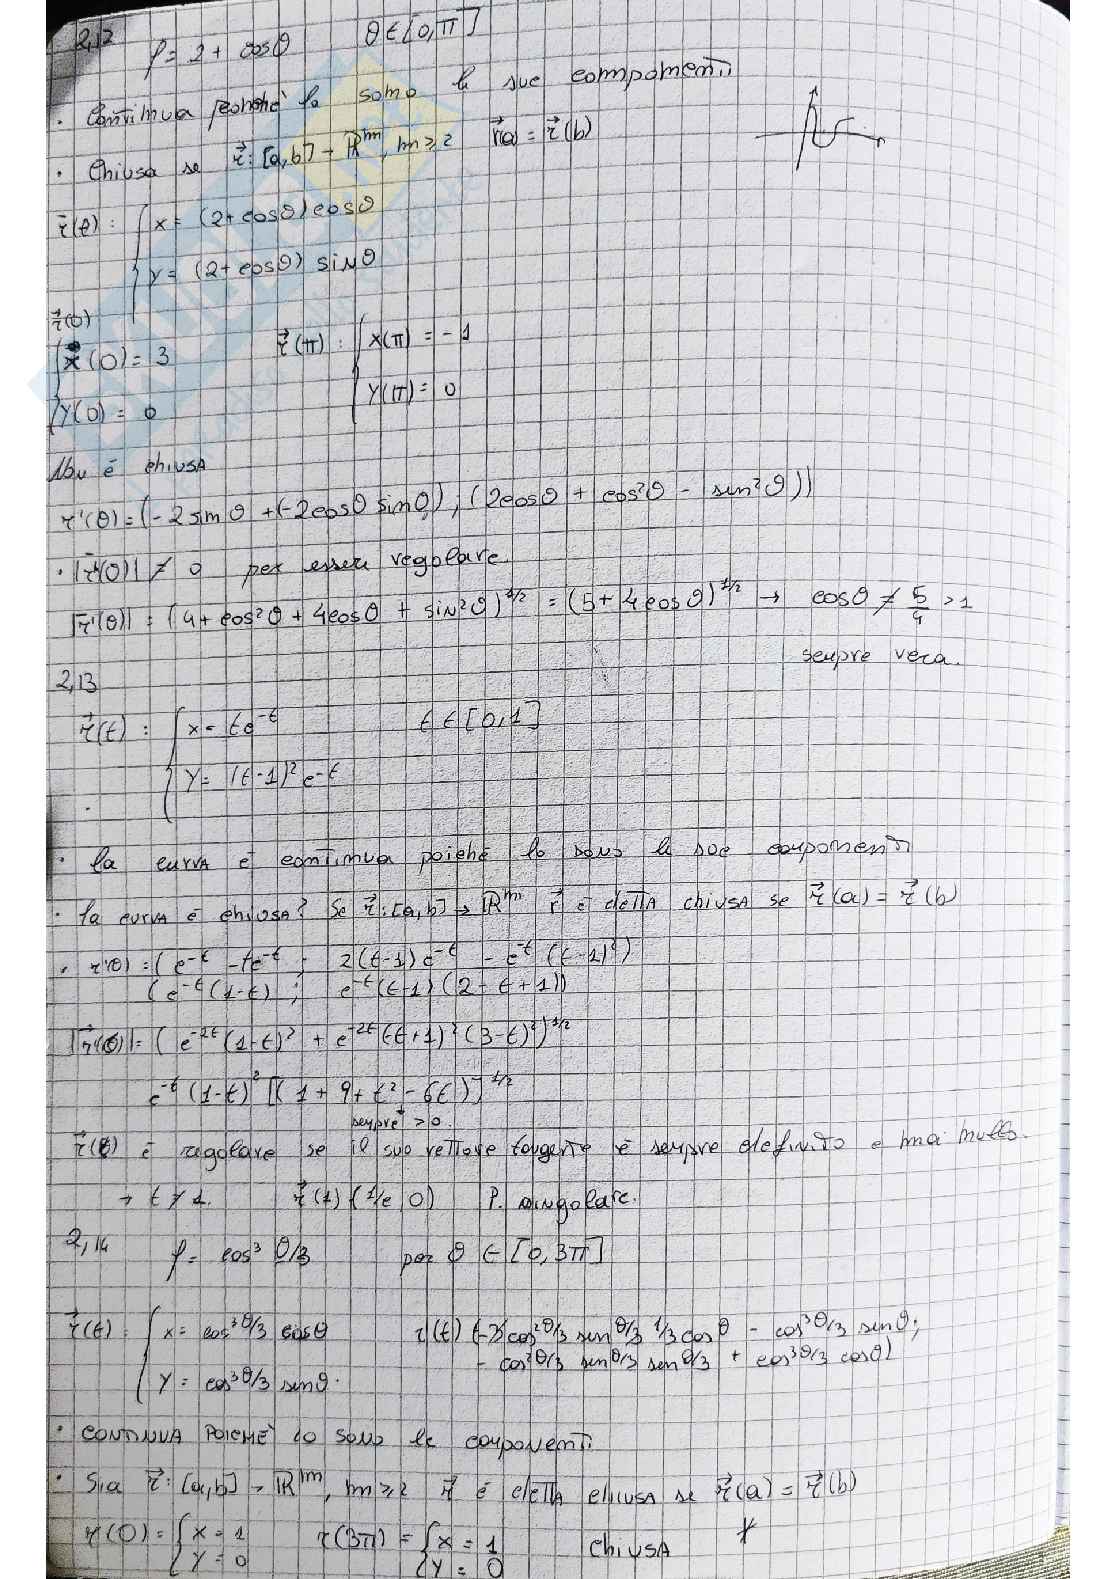 2,12
ρ = 2 + cosθ θ ∈ [0,π]
· Continua perché lo sono le sue componenti
· Chiusa se r⃗: [a,b] → ℝᵐ, m ≥ 2 r⃗(a) = r⃗(b)
r⃗(θ): { x = (2+cosθ) cosθ
y = (2+cosθ) sinθ
r⃗(0)
{ x(0) = 3 r⃗(π): { x(π) = -1
y(0) = 0 y(π) = 0
Non è chiusa
r'(θ) = (-2sinθ + (-2cosθ sinθ); (2cosθ + cos²θ - sin²θ))
· |r⃗'(θ)| ≠ 0 per essere regolare
|r⃗'(θ)| = (4 + cos²θ + 4cosθ + sin²θ)^1/2 = (5 + 4cosθ)^1/2 → cosθ ≠ 5/4 > 1
sempre vera.
2,13
r⃗(t): { x = te^-t t ∈ [0,1]
y = (t-1)² e^-t
· la curva è continua poiché lo sono le sue componenti
· la curva è chiusa? Se r⃗: [a,b] → ℝᵐ r⃗ è detta chiusa se r⃗(a) = r⃗(b)
· r'(θ) = (e^-t - te^-t ; 2(t-1)e^-t - e^-t (t-1)²)
(e^-t (1-t) ; e^-t (t-1) (2 - t + 1))
|r⃗'(t)| = (e^-2t (1-t)² + e^-2t (t+1)² (3-t)²)^1/2
e^-t (1-t)² [(1 + 9 + t² - 6t)]^1/2
sempre > 0.
r⃗(t) è regolare se il suo vettore tangente è sempre definito e mai nullo.
→ t ≠ 1. r⃗(1) (1/e, 0) P. singolare.
2,14
ρ = cos³ θ/3 per θ ∈ [0, 3π]
r⃗(t): { x = cos³θ/3 cosθ r'(t) (-3(cos²θ/3 senθ/3 1/3 cosθ - cos³θ/3 senθ;
- cos²θ/3 senθ/3 senθ/3 + cos³θ/3 cosθ)
y = cos³θ/3 senθ.
· CONTINUA POICHÉ lo sono le componenti
· Sia r⃗: [a,b] → ℝᵐ, m ≥ 2 r⃗ è detta chiusa se r⃗(a) = r⃗(b)
r(0) = { x = 1 r(3π) = { x = 1 chiusa
y = 0 y = 0